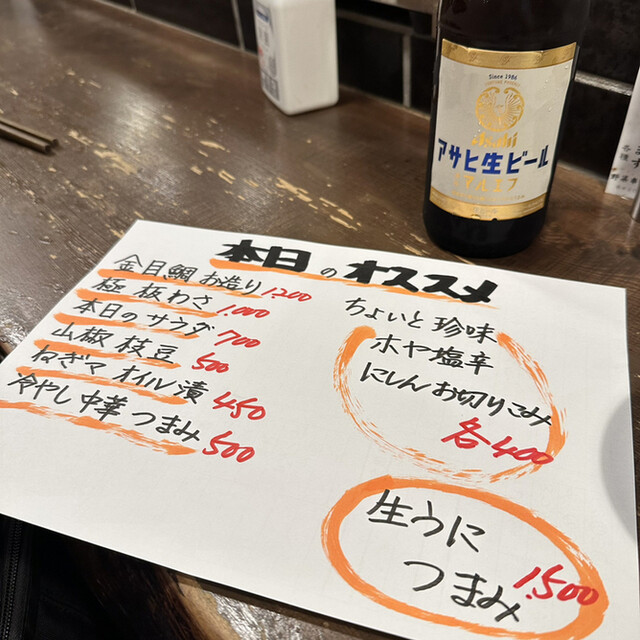 Since 1986
asahi
アサヒ生ビール
マルエフ
本日のオススメ
金目鯛お造り 1,200
極 板わさ 1,000
本日のサラダ 700
山椒枝豆 500
ねぎマ オイル漬 450
冷やし中華つまみ 500
ちょいと珍味
ホヤ塩辛
にしんお切りこみ
各400
生うに
つまみ 1,500